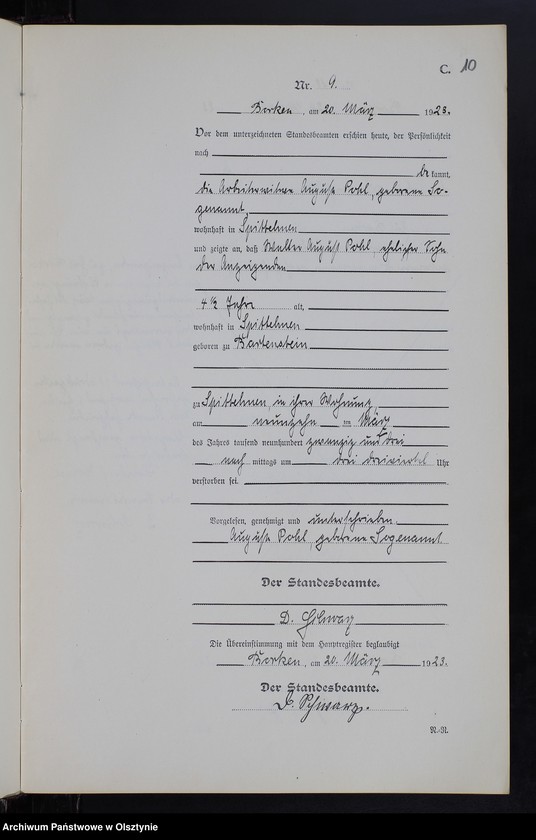 C. 10
Nr. 9.
Borken, am 20. März 1923.
Vor dem unterzeichneten Standesbeamten erschien heute, der Persönlichkeit
nach
be kannt,
die Arbeiterwitwe Auguste Pohl, geborene So-
genannt,
wohnhaft in Spittehnen
und zeigte an, daß Walter August Pohl, ehelicher Sohn
der Anzeigenden
4 1/2 Jahre alt,
wohnhaft in Spittehnen
geboren zu Bartenstein
zu Spittehnen, in ihrer Wohnung,
am neunzehn ten März
des Jahres tausend neunhundert zwanzig und drei
nach mittags um drei dreiviertel Uhr
verstorben sei.
Vorgelesen, genehmigt und unterschrieben
Auguste Pohl, geborene Sogenannt
Der Standesbeamte.
D. Schwarz
Die Übereinstimmung mit dem Hauptregister beglaubigt
Borken, am 20. März 1923.
Der Standesbeamte.
D. Schwarz.
N.-R.
Archiwum Państwowe w Olsztynie